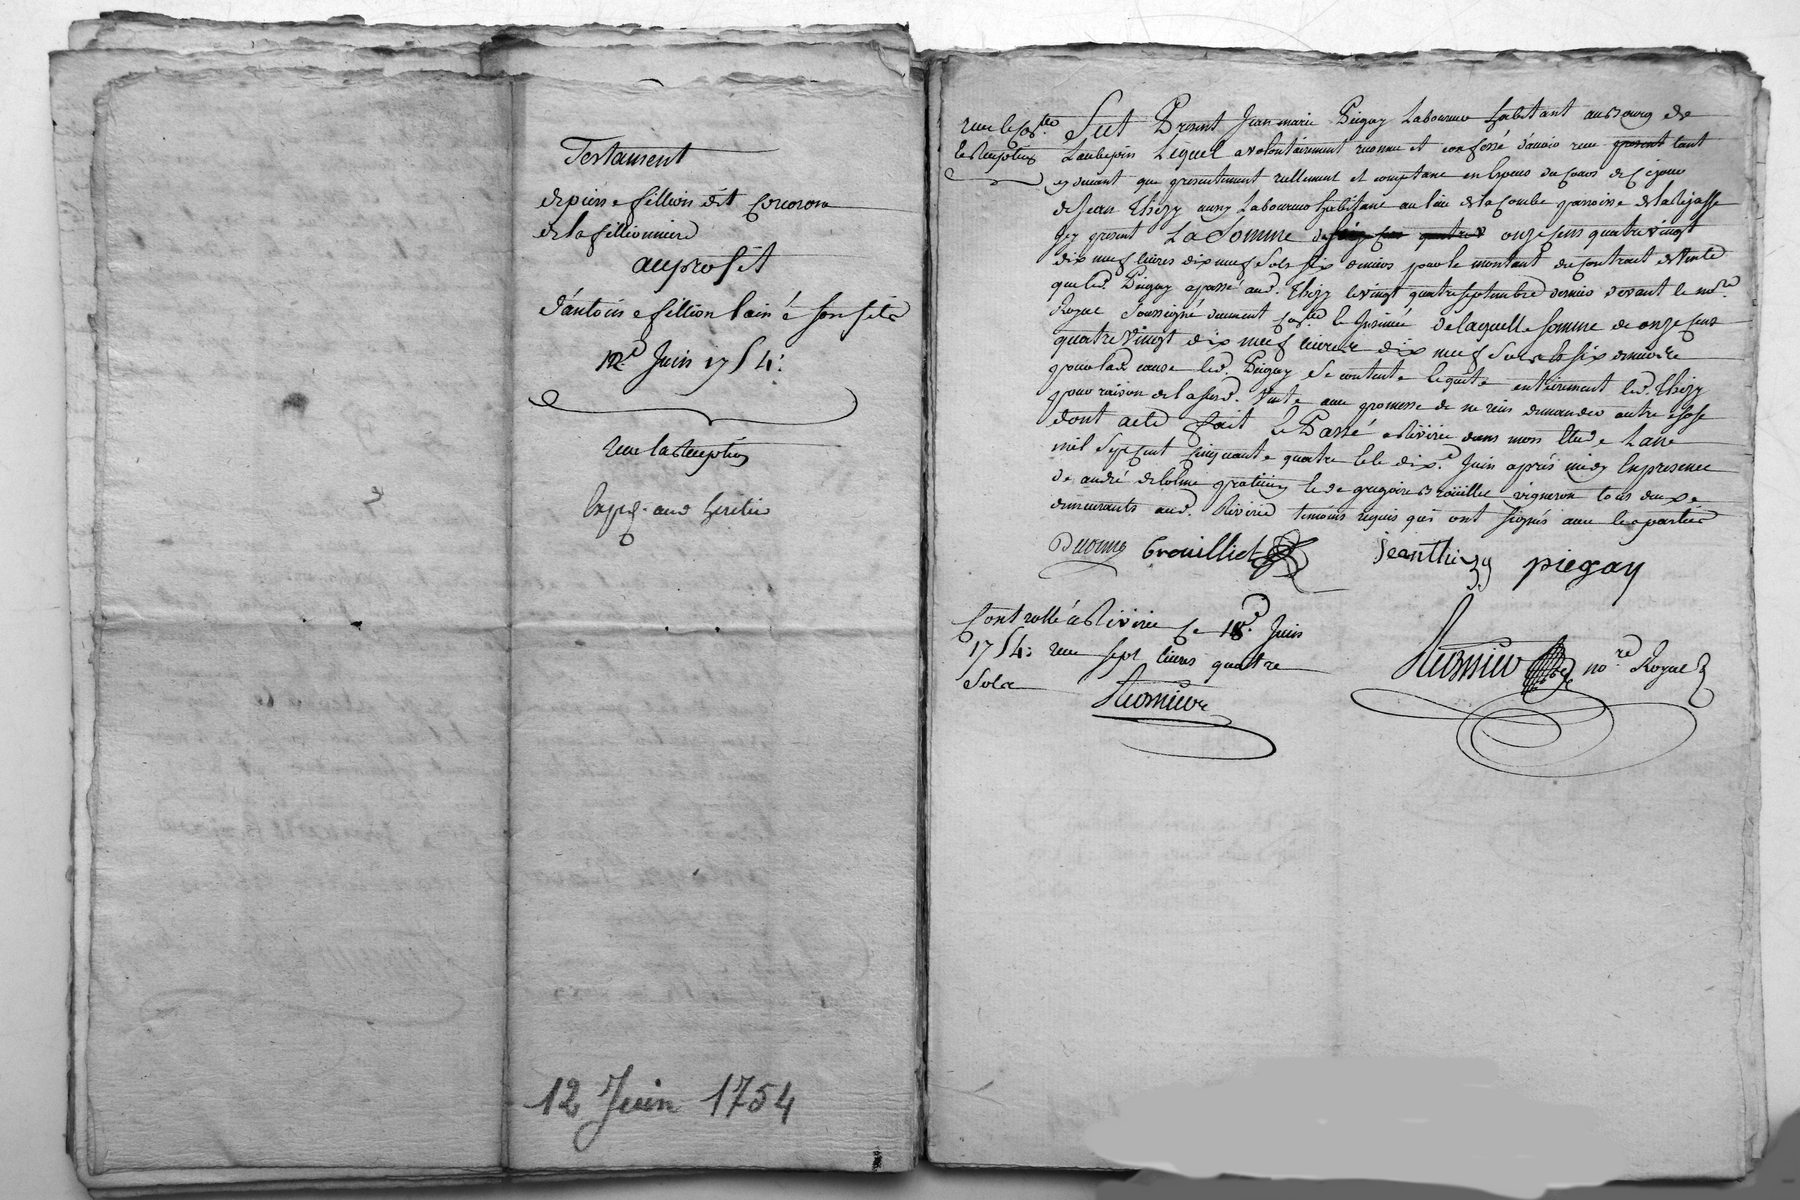 Testament
de pierre fillion dit Corcoron
de la fillionniere
au profit
d'antoine fillion lainé son fils
12e Juin 1754:
receu la reception
Exp.é aud heritier
12 Juin 1754
receu le Con.lle
la reception
Fut Present Jean marie Piegay Laboureur habitant au Bourg de
Laubepin Lequel a volontairement reconnu et confessé d'avoir receu present tant
cy devant que presentement reellement et comptant en Especes du Cours de Ce jour
de Jean Thizy aussy Laboureur habitant au lieu de la Combe paroisse de la Rajasse
icy present La Somme de onze cens quatre vingt
dix neuf livres dix neuf sols six deniers pour le montant du Contrat de Vente
que led. Piegay a passé aud. Thizy le vingt quatre septembre dernier devant le no.re
Royal soussigné duement Con.lé et Insinué de laquelle somme de onze cens
quatre Vingt dix neuf livres dix neuf sols six deniers
pour lad cause led. Piegay Se contente et quitte entierement led. Thizy
pour raison de la susd. Vente avec promesse de ne rien demander autre chose
dont acte fait et Passé a Riverie dans mon Etude Lan
mil Sept cent Cinquante quatre et le dix.e Juin après midy En presence
de andré delolme praticien et de gregoire Brouillet vigneron tous deux
demeurants aud. Riverie temoins requis qui ont signés avec les parties
Delolme Brouilliet Jean Thizy piegay
Controllé a Riverie ce 18e Juin
1754: receu sept livres quatre
Sols
no.re Royal